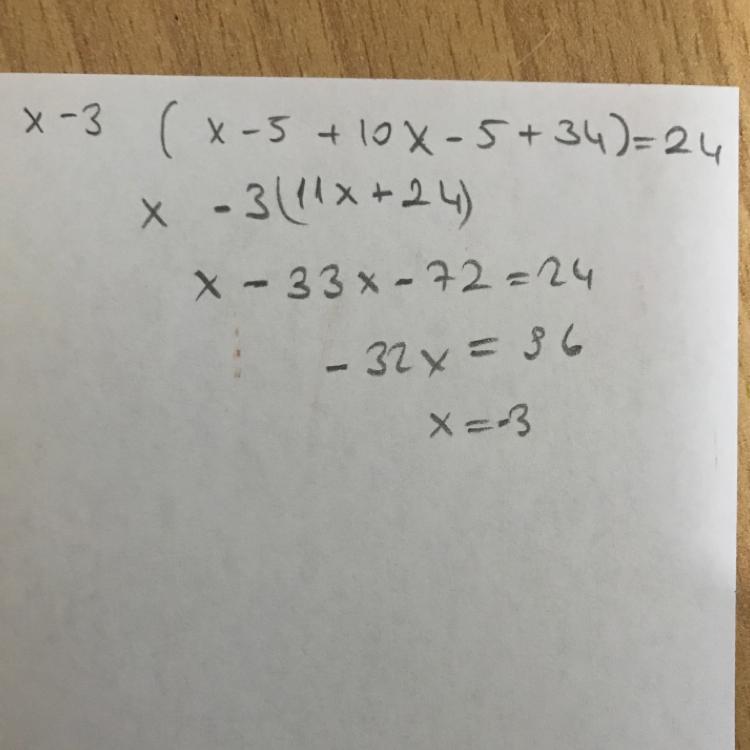 x - 3 ( x - 5 + 10x - 5 + 34) = 24
x - 3(11x + 24)
x - 33x - 72 = 24
- 32x = 96
x = -3